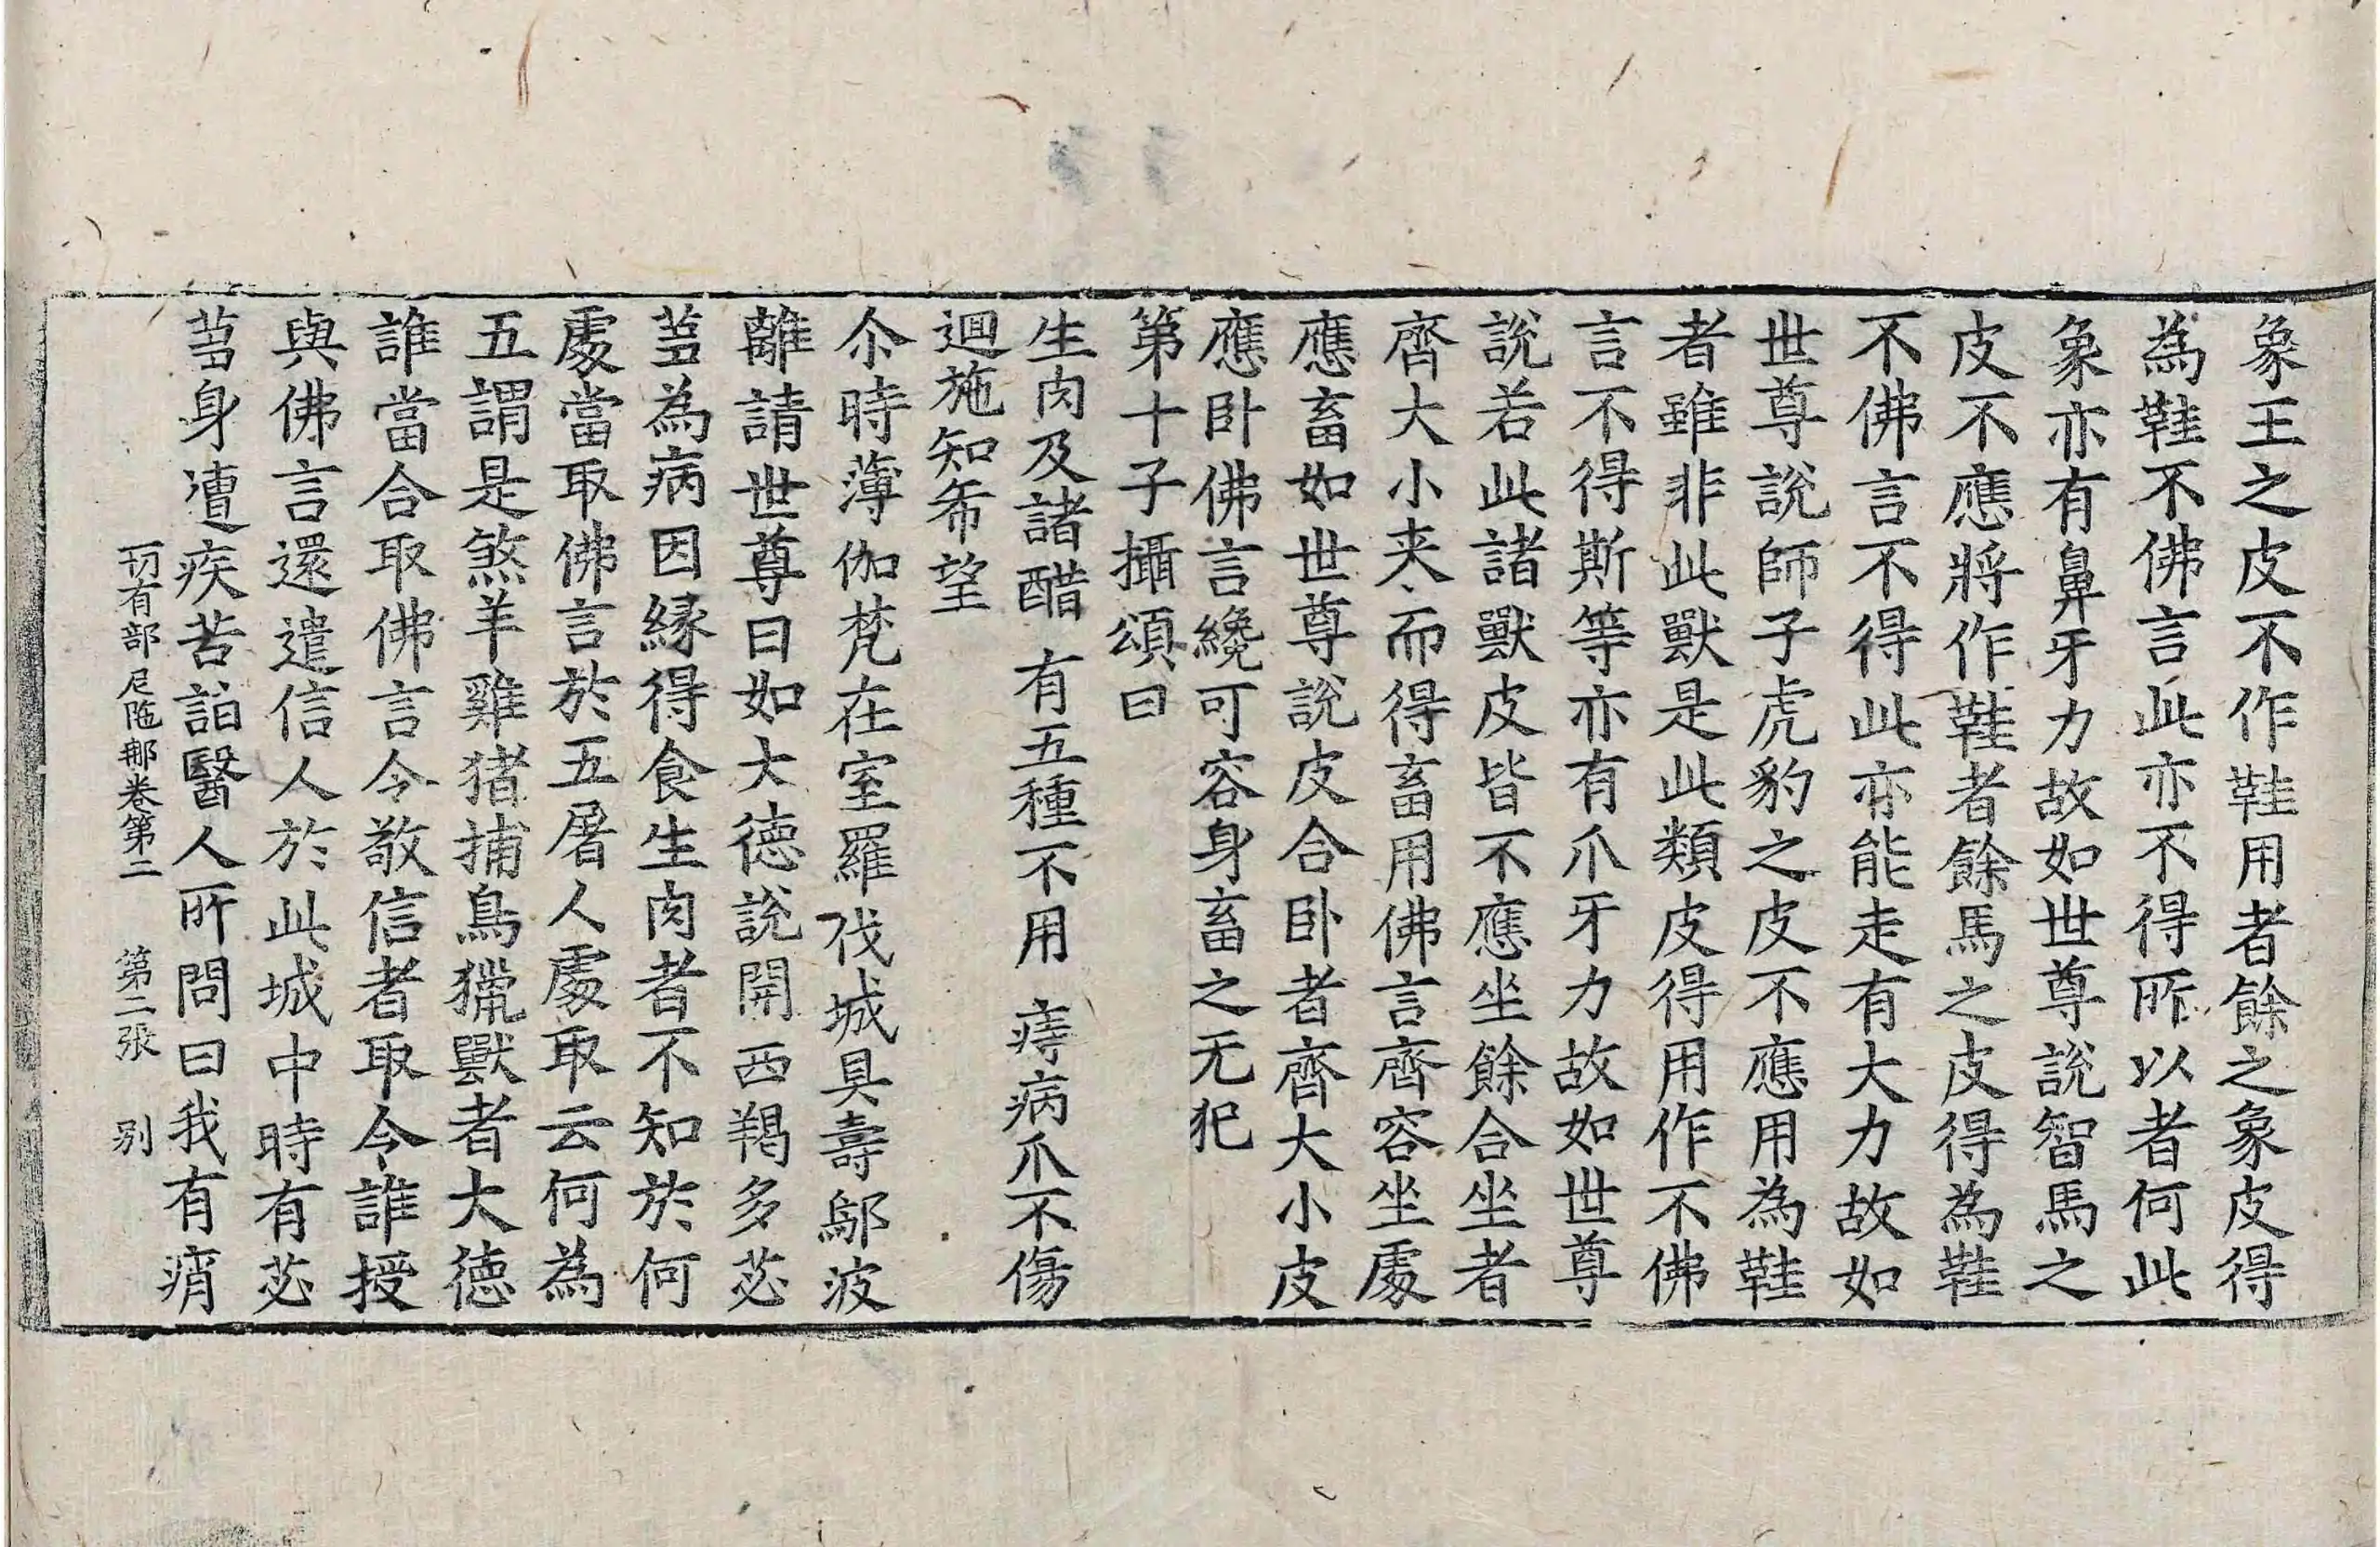 象王之皮不作鞋用者餘之象皮得
為鞋不佛言此亦不得所以者何此
象亦有鼻牙力故如世尊說智馬之
皮不應將作鞋者餘馬之皮得為鞋
不佛言不得此亦能走有大力故如
世尊說師子虎豹之皮不應用為鞋
者雖非此獸是此類皮得用作不佛
言不得斯等亦有爪牙力故如世尊
說若此諸獸皮皆不應坐餘合坐者
齊大小夾而得畜用佛言齊容坐處
應畜如世尊說皮合卧者齊大小皮
應卧佛言纔可容身畜之无犯
第十子攝頌曰
生肉及諸醋 有五種不用 痔病爪不傷
迴施知希望
尒時薄伽梵在室羅伐城具壽鄔波
離請世尊曰如大德說開西羯多苾
蒭為病因緣得食生肉者不知於何
處當取佛言於五屠人處取云何為
五謂是煞羊雞猪捕鳥獵獸者大德
誰當合取佛言令敬信者取令誰授
與佛言還遣信人於此城中時有苾
蒭身遭疾苦詣醫人所問曰我有痟
一切有部尼陁那卷第二 第二張 別